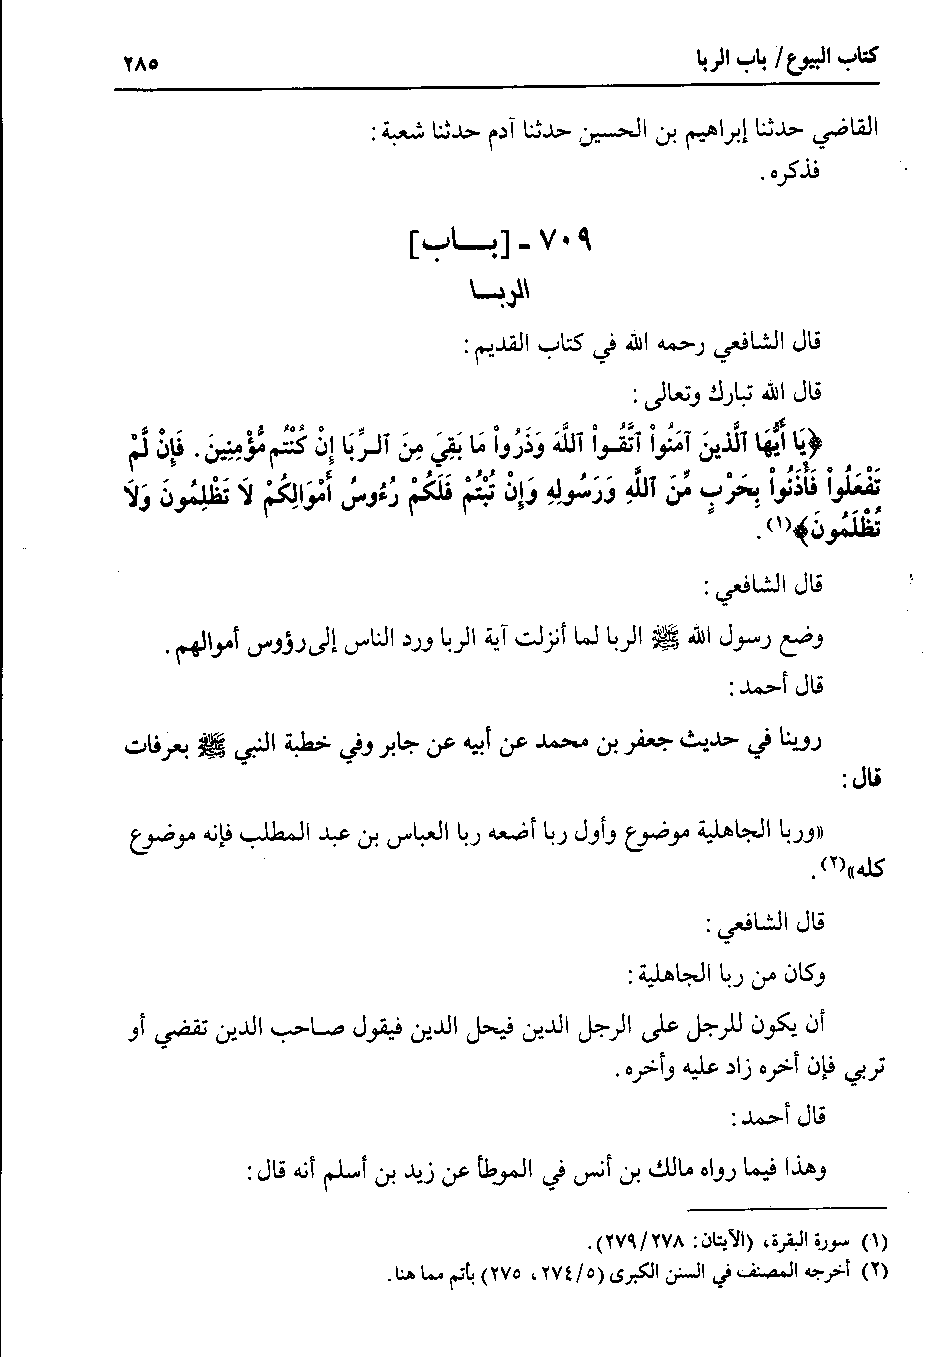 كتاب البيوع / باب الربا ٢٨٥
القاضي حدثنا إبراهيم بن الحسين حدثنا آدم حدثنا شعبة:
فذكره.
٧٠٩ - [بـــاب]
الربـــا
قال الشافعي رحمه الله في كتاب القديم:
قال الله تبارك وتعالى:
﴿يَا أَيُّهَا ٱلَّذِينَ آمَنُواْ ٱتَّقُـواْ ٱللَّهَ وَذَرُواْ مَا بَقِيَ مِنَ ٱلـرِّبَا إِنْ كُنْتُم مُّؤْمِنِينَ. فَإِنْ لَّمْ
تَفْعَلُواْ فَأْذَنُواْ بِحَرْبٍ مِّنَ ٱللَّهِ وَرَسُولِهِ وَإِنْ تُبْتُمْ فَلَكُمْ رُءُوسُ أَمْوَالِكُمْ لَا تَظْلِمُونَ وَلَا
تُظْلَمُونَ﴾(١).
قال الشافعي:
وضع رسول الله ﷺ الربا لما أنزلت آية الربا ورد الناس إلى رؤوس أموالهم.
قال أحمد:
روينا في حديث جعفر بن محمد عن أبيه عن جابر وفي خطبة النبي ﷺ بعرفات
قال:
«وربا الجاهلية موضوع وأول ربا أضعه ربا العباس بن عبد المطلب فإنه موضوع
كله»(٢).
قال الشافعي:
وكان من ربا الجاهلية:
أن يكون للرجل على الرجل الدين فيحل الدين فيقول صـاحب الدين تقضي أو
تربي فإن أخره زاد عليه وأخره.
قال أحمد:
وهذا فيما رواه مالك بن أنس في الموطأ عن زيد بن أسلم أنه قال:
(١) سورة البقرة، (الآيتان: ٢٧٨/ ٢٧٩).
(٢) أخرجه المصنف في السنن الكبرى (٥/ ٢٧٤، ٢٧٥) بأتم مما هنا.